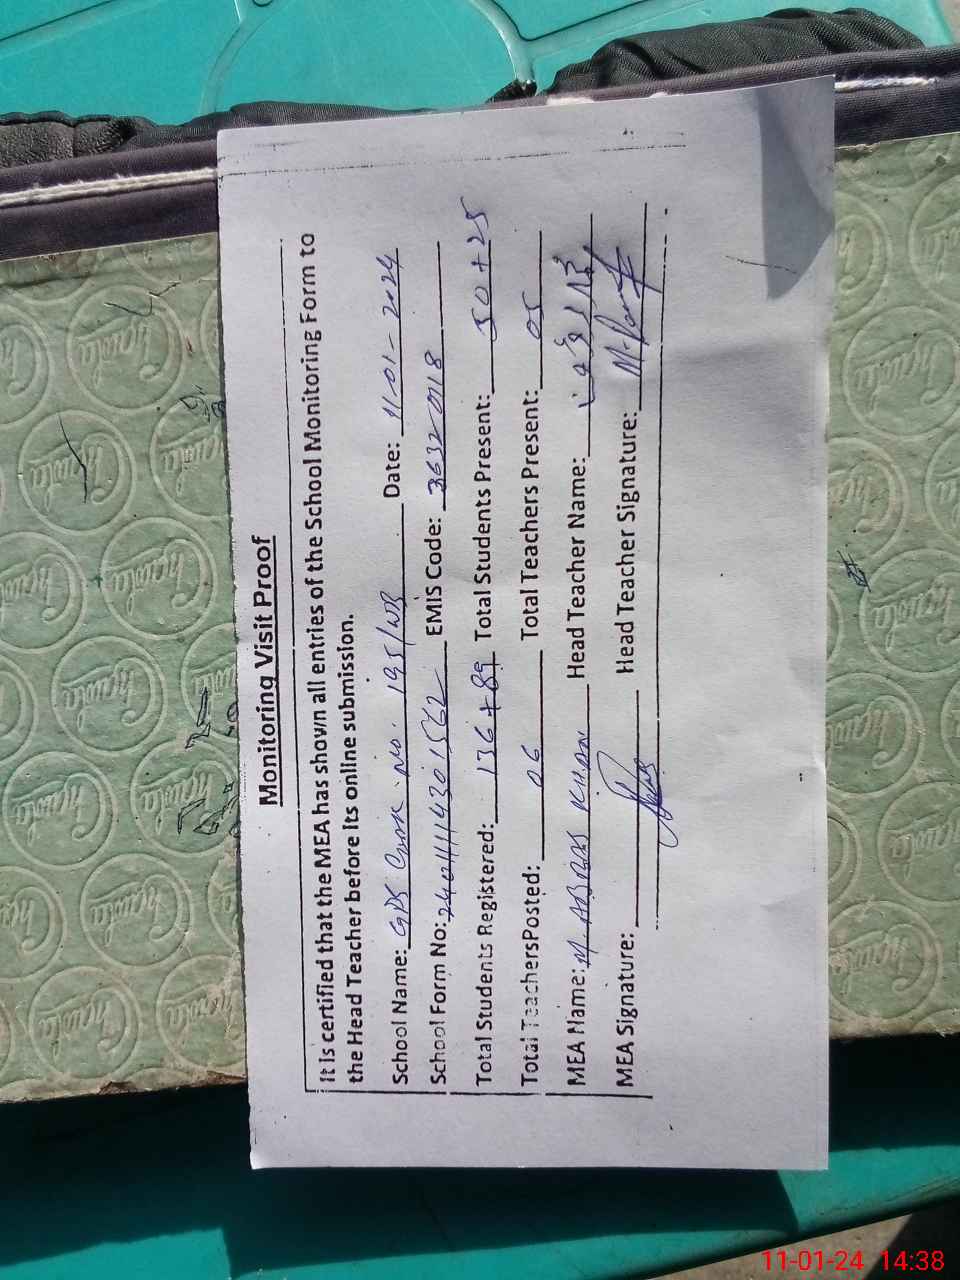 Monitoring Visit Proof
It is certified that the MEA has shown all entries of the School Monitoring Form to
the Head Teacher before its online submission.
School Name: GPS Chak No. 195/WB Date: 11-01-2024
School Form No: 24011114301562 EMIS Code: 36320118
Total Students Registered: 136+89 Total Students Present: 50+25
Total TeachersPosted: 06 Total Teachers Present: 05
MEA Name: M ABBAS KHAN Head Teacher Name:
MEA Signature: Head Teacher Signature:
Chawla
11-01-24 14:38